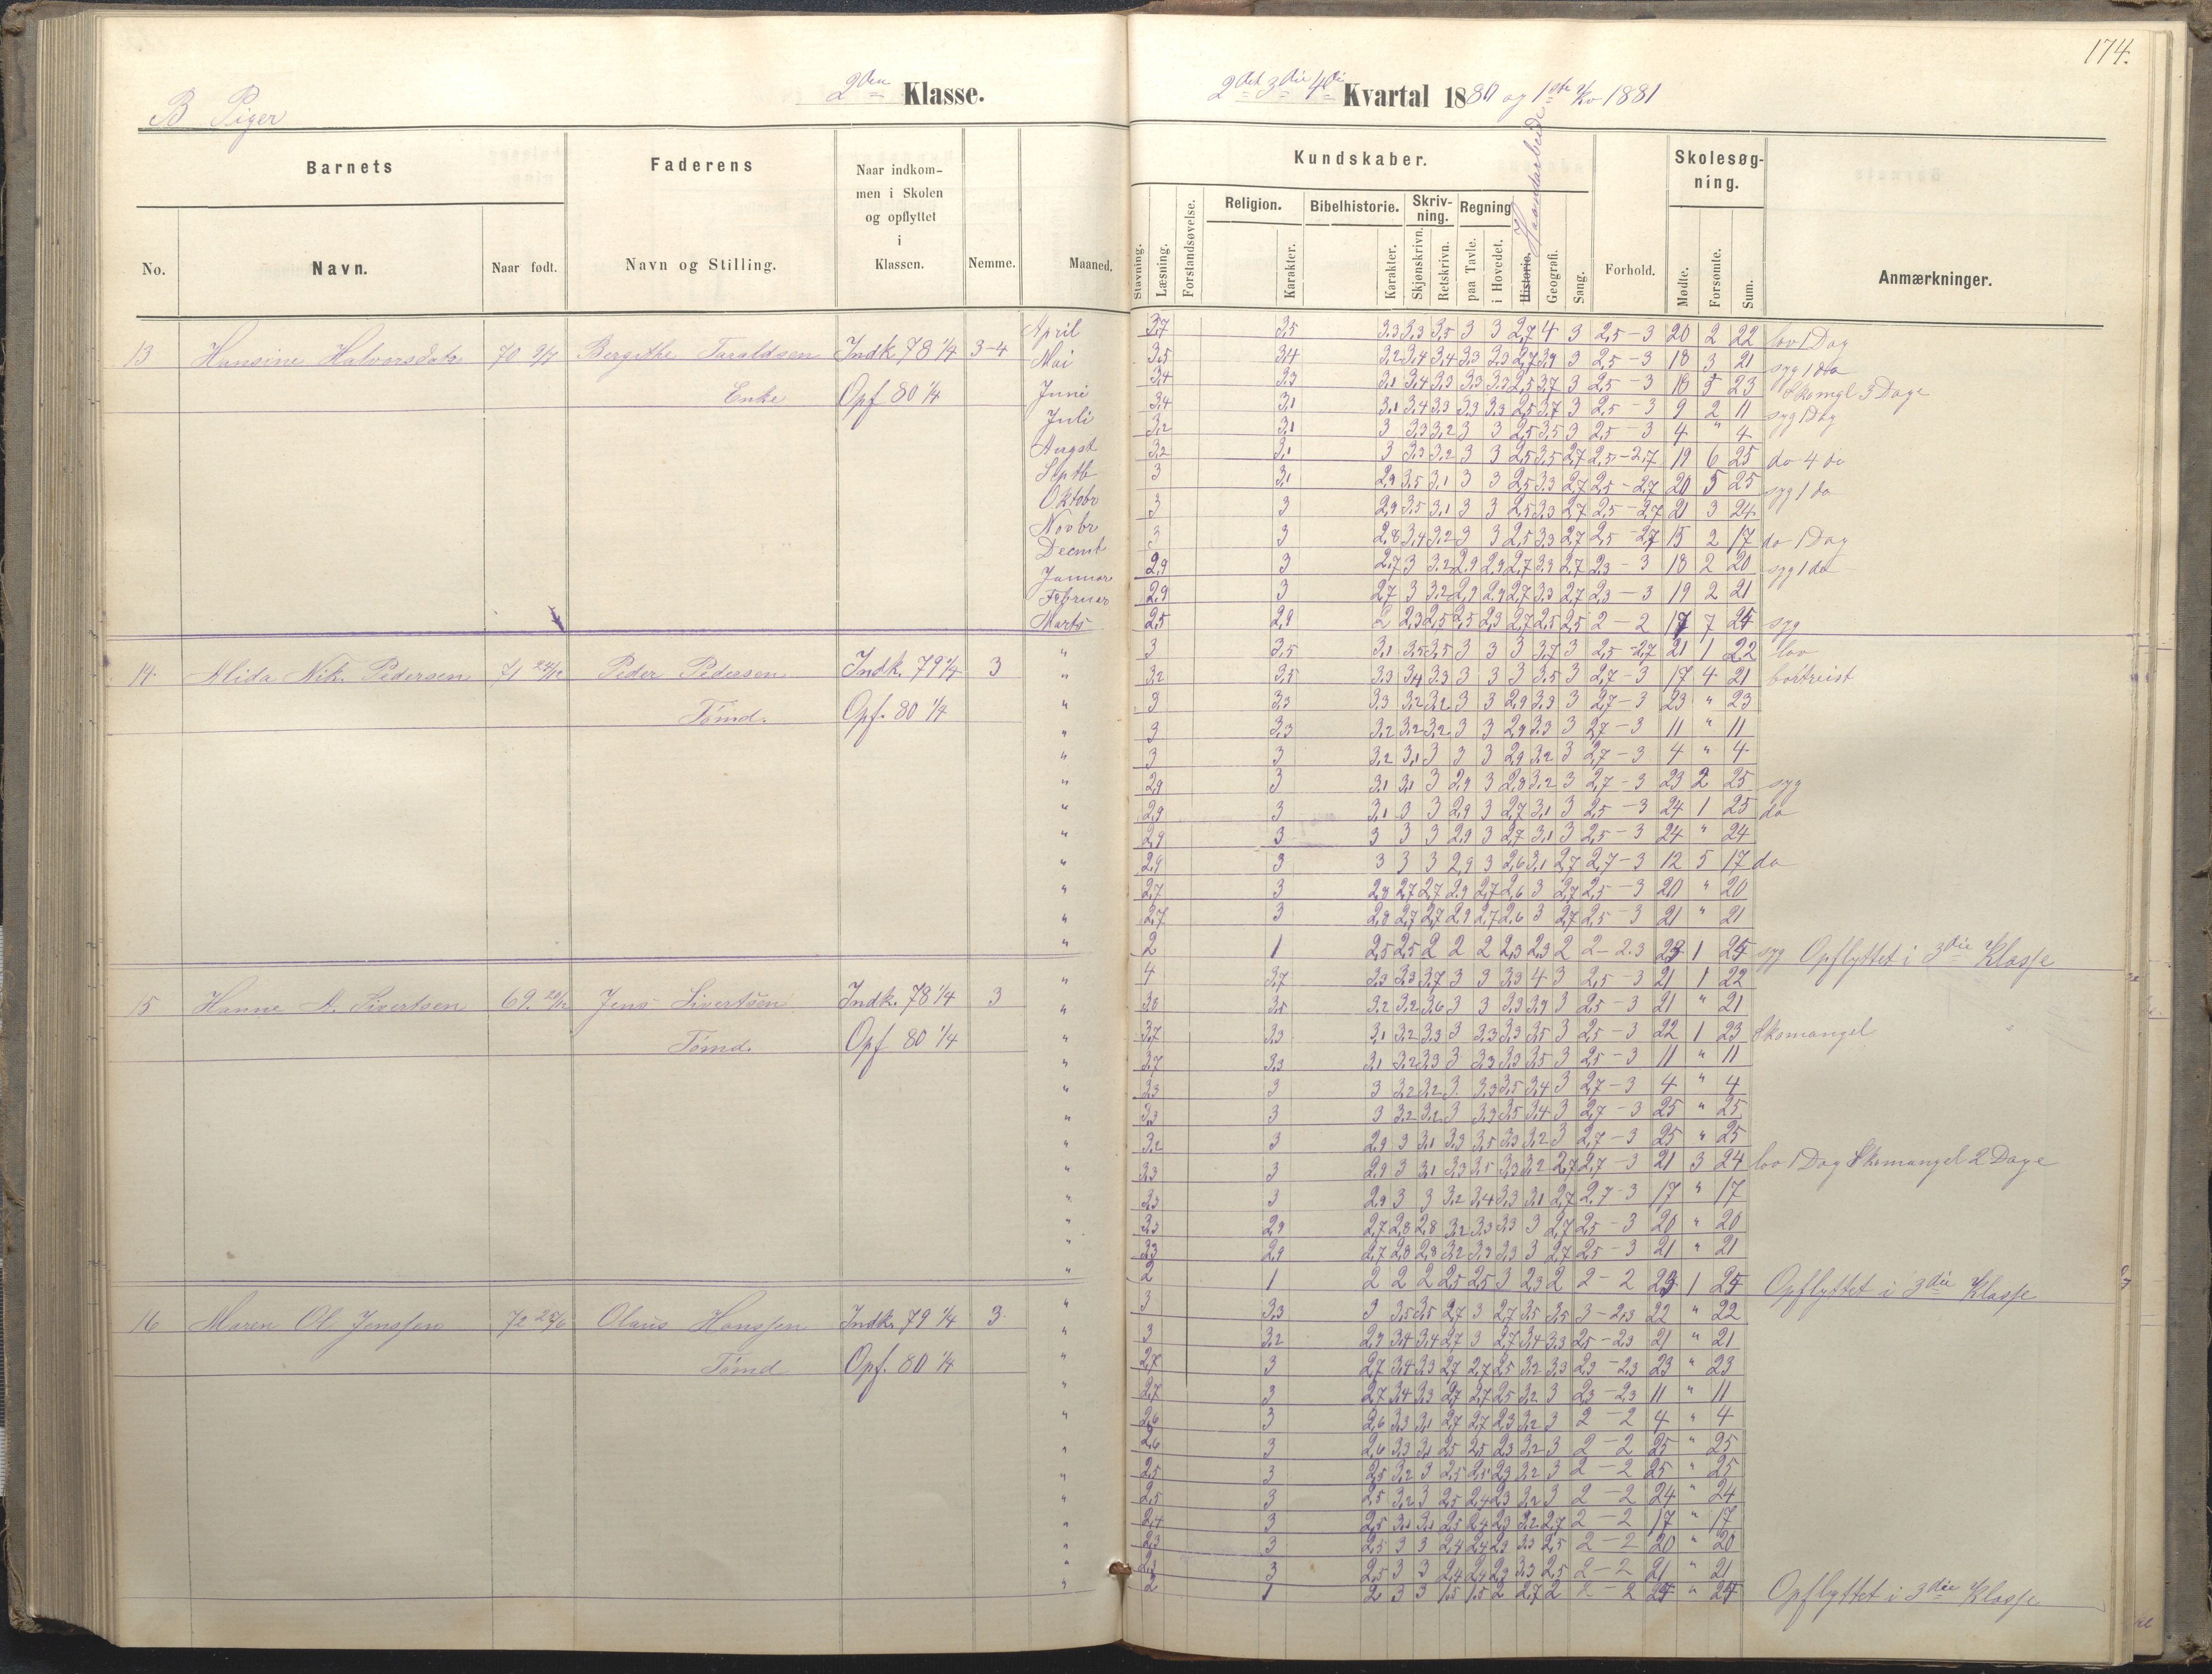 174.
B Piger
2den Klasse.
2det 3die 4de Kvartal 1880 og 1ste Kv 1881
Barnets
Faderens
Naar indkommen i Skolen og opflyttet i Klassen.
Nemme.
Maaned.
No.
Navn.
Naar født.
Navn og Stilling.
Kundskaber.
Stavning.
Læsning.
Forstandsøvelse.
Religion.
Karakter.
Bibelhistorie.
Karakter.
Skrivning.
Skjønskrivn.
Retskrivn.
Regning
paa Tavle.
i Hovedet.
Historie. Haandarbeide
Geografi.
Sang.
Forhold.
Skolesøgning.
Mødte.
Forsømte.
Sum.
Anmærkninger.
13 Hansine Halvorsdatr 70 2/7 Bergithe Taraldsen Indk 78 1/4 3-4
Enke Opf 80 1/4
April 3,7 3,5 3,3 3,3 3,5 3 3 2,7 4 3 2,5-3 20 2 22 lov 1 Dag
Mai 3,5 3,4 3,2 3,4 3,4 3,3 3,3 2,7 3,9 3 2,5-3 18 3 21 syg 1 do
Juni 3,4 3,3 3,1 3,4 3,3 3,3 3,3 2,5 3,7 3 2,5-3 18 5 23 Skomgl 3 Dage
Juli 3,4 3,1 3,1 3,4 3,3 3,3 3,3 2,5 3,7 3 2,5-3 9 2 11 syg 1 Dag
Augst 3,2 3,1 3 3,3 3,2 3 3 2,5 3,5 3 2,5-3 4 " 4
Septb 3,2 3,1 3 3,3 3,2 3 3 2,5 3,5 2,7 2,5-2,7 19 6 25 do 4 do
Oktobr 3 3,1 2,9 3,5 3,1 3 3 2,5 3,3 2,7 2,5-2,7 20 5 25 syg 1 do
Novbr 3 3 2,9 3,5 3,1 3 3 2,5 3,3 2,7 2,5-2,7 21 3 24
Decmb 3 3 2,8 3,4 3,2 3 3 2,5 3,3 2,7 2,5-2,7 15 2 17 do 1 Dag
Januar 2,9 3 2,7 3 3,2 2,9 2,9 2,7 3,3 2,7 2,3-3 18 2 20 syg 1 do
Februar 2,9 3 2,7 3 3,2 2,9 2,9 2,7 3,3 2,7 2,3-3 19 2 21
Marts 2,5 2,9 2 2,3 2,5 2,5 2,3 2,7 2,5 2,5 2-2 17 7 24 syg
14 Alida Nik. Pedersen 71 Peder Pedersen Indk. 79 1/4 3
Tømd. Opf. 80 1/4
" 3 3,5 3,1 3,5 3,5 3 3 3 3,7 3 2,5-2,7 21 1 22 lov
" 3,2 3,5 3,3 3,4 3,3 3 3 3 3,5 3 2,7-3 17 4 21 bortreist
" 3 3,3 3,3 3,2 3,2 3 3 2,9 3,3 3 2,7-3 23 " 23
" 3 3,3 3,2 3,2 3,2 3 3 2,9 3,3 3 2,7-3 11 " 11
" 3 3 3,2 3,1 3 3 3 2,9 3,2 3 2,7-3 4 " 4
" 2,9 3 3,1 3,1 3 2,9 3 2,8 3,2 3 2,7-3 23 2 25 syg
" 2,9 3 3,1 3 3 2,9 3 2,7 3,1 3 2,5-3 24 1 25 do
" 2,9 3 3 3 3 2,9 3 2,7 3,1 3 2,5-3 24 " 24
" 2,9 3 3 3 3 2,9 3 2,6 3,1 2,7 2,7-3 12 5 17 do
" 2,7 3 2,8 2,7 2,7 2,9 2,7 2,6 3 2,7 2,5-3 20 " 20
" 2,7 3 2,8 2,7 2,7 2,9 2,7 2,6 3 2,7 2,5-3 21 " 21
" 2 1 2,5 2,5 2 2 2 2,3 2,3 2 2-2.3 23 1 24 syg Opflyttet i 3die Klasse
15 Hanne A. Sivertsen 69. Jens Sivertsen Indk. 78 1/4 3
Tømd. Opf 80 1/4
" 4 3,7 3,3 3,3 3,7 3 3 3,3 4 3 2,5-3 21 1 22
" 3,8 3,5 3,2 3,2 3,6 3 3 3,3 3,9 3 2,5-3 21 " 21
" 3,7 3,3 3,1 3,2 3,3 3 3,3 3,3 3,5 3 2,5-3 22 1 23 Skomangel
" 3,7 3,3 3,1 3,2 3,3 3 3,3 3,3 3,5 3 2,5-3 11 " 11
" 3,3 3 3 3,2 3,2 3 3,3 3,5 3,4 3 2,7-3 4 " 4
" 3,3 3 3 3,2 3,2 3 3,3 3,5 3,4 3 2,7-3 25 " 25
" 3,2 3 2,9 3 3,1 3,3 3,5 3,3 3,2 3 2,7-3 25 " 25
" 3,3 3 2,9 3 3,1 3,3 3,5 3,3 3,2 2,7 2,7-3 21 3 24 lov 1 Dag Skomangel 2 Dage
" 3,3 3 2,9 3 3 3,2 3,4 3,3 3,1 2,7 2,7-3 17 " 17
" 3,3 2,9 2,7 2,8 2,8 3,2 3,3 3,3 3 2,7 2,5-3 20 " 20
" 3,3 2,9 2,7 2,8 2,8 3,2 3,3 3,3 3 2,7 2,5-3 21 " 21
" 2 1 2 2 2 2,5 2,5 3 2,3 2 2-2 23 1 24 Opflyttet i 3die Klasse
16 Maren Ol. Jenssen 72 25/6 Olaus Hanssen Indk. 79 1/4 3
Tømd Opf. 80 1/4
" 3 3,3 3 3,5 3,5 2,7 3 2,7 3,5 3,5 3-2,3 22 " 22
" 3 3,2 2,9 3,4 3,4 2,7 3 2,7 3,4 3,3 2,5-2,3 21 " 21
" 2,7 3 2,7 3,4 3,3 2,7 2,7 2,5 3,2 3,3 2,3-2,3 23 " 23
" 2,7 3 2,7 3,4 3,3 2,7 2,7 2,5 3,2 3 2,3-2,3 11 " 11
" 2,6 3 2,6 3,3 3,1 2,7 2,7 2,3 3,2 3 2-2 4 " 4
" 2,6 3 2,6 3,3 3,1 2,5 2,5 2,3 3,2 3 2-2 25 " 25
" 2,5 3 2,5 3,2 3 2,5 2,5 2,3 3,2 3 2-2 25 " 25
" 2,5 3 2,5 3,2 3 2,5 2,4 2,3 3,2 3 2-2 24 " 24
" 2,4 3 2,5 3,1 3,1 2,5 2,4 2,3 3,2 2,7 2-2 17 " 17
" 2,3 3 2,5 3 3 2,4 2,4 2,3 3,3 2,5 2-2 20 " 20
" 2,3 3 2,5 3 3 2,4 2,4 2,3 3,3 2,5 2-2 21 " 21
" 2 1 2 3 3 1,5 1,5 2 2,7 2 2-2 24 " 24 Opflyttet i 3die Klasse